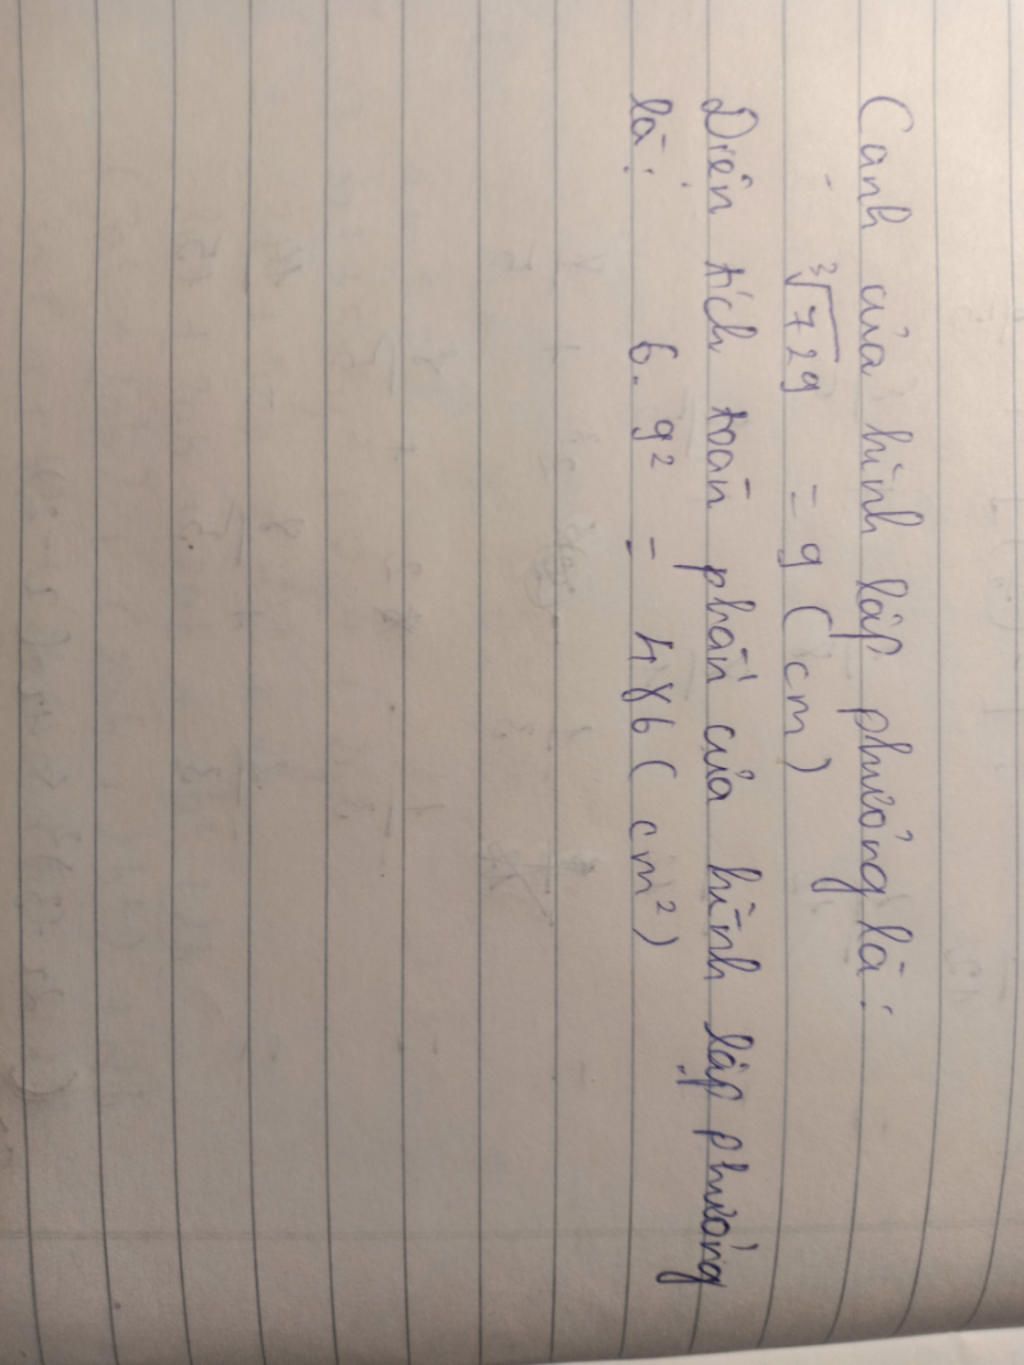 Cạnh của hình lập phương là:
∛729 = 9 (cm)
Diện tích toàn phần của hình lập phương
là: 6. 9² = 486 (cm²)